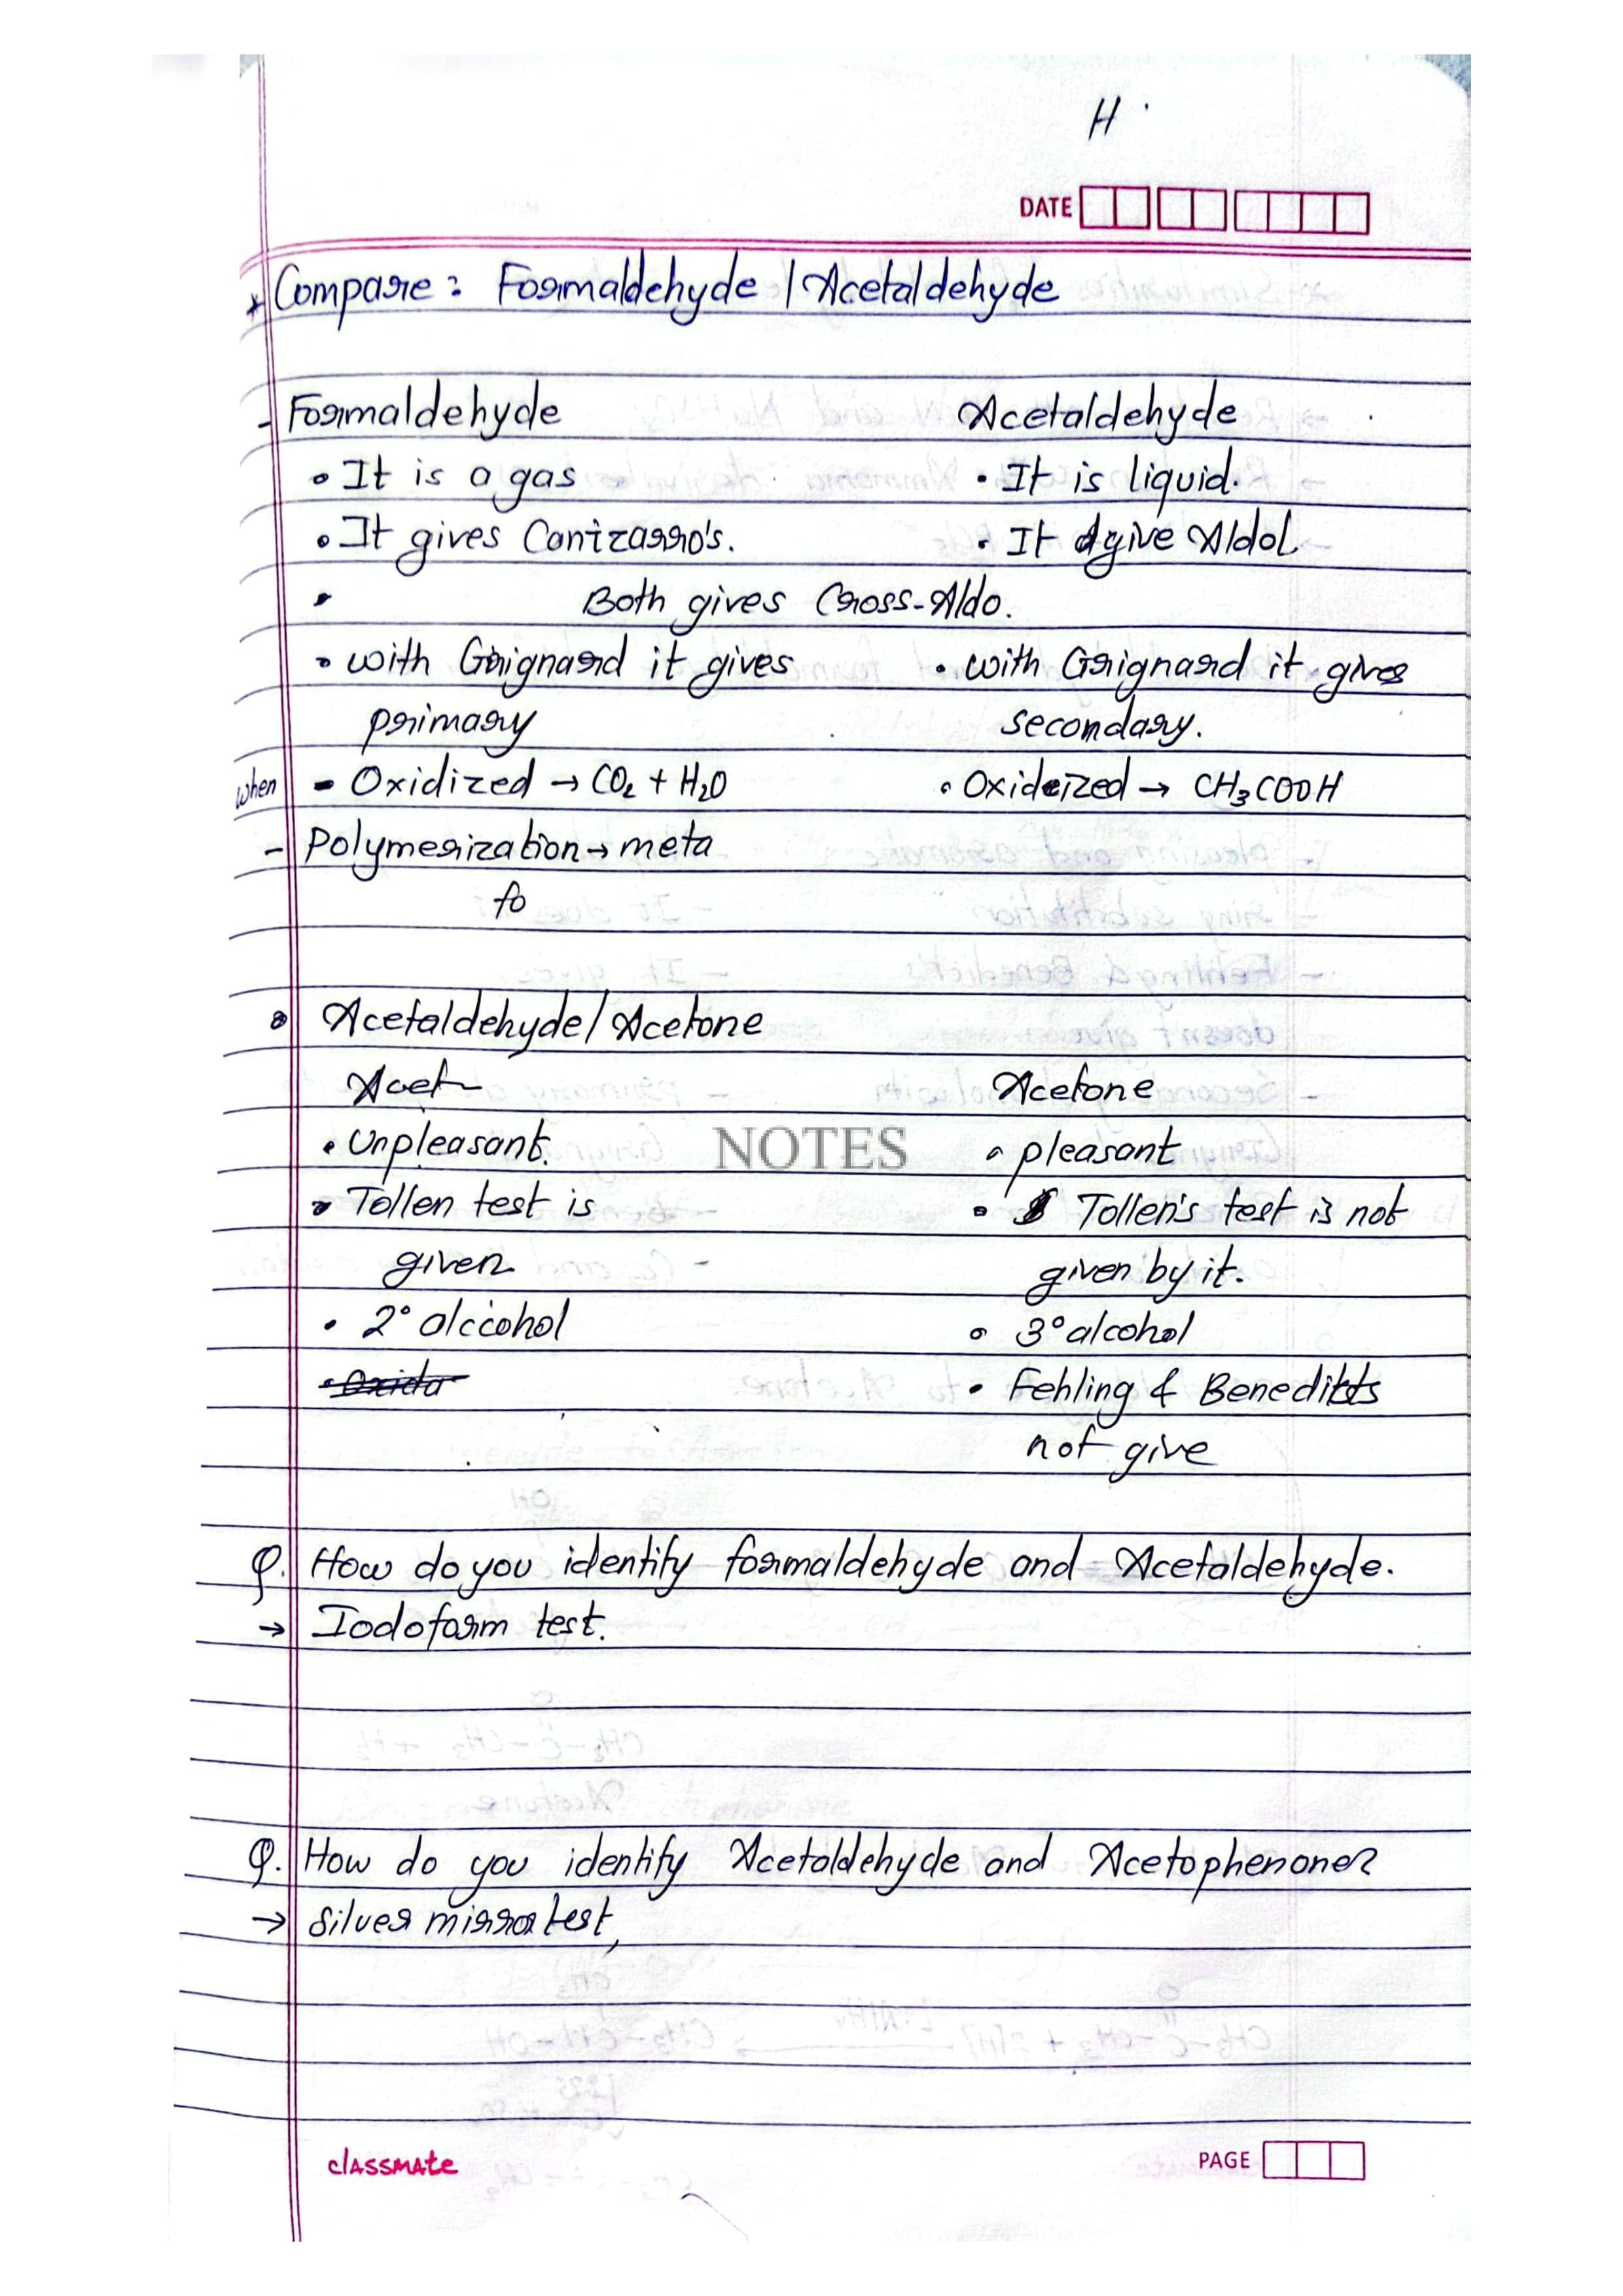 H
DATE
* Compare: Formaldehyde / Acetaldehyde
- Formaldehyde Acetaldehyde
• It is a gas • It is liquid.
• It gives Canizzarro's. • It give Aldol
• Both gives Cross-Aldo.
• with Grignard it gives • with Grignard it gives
primary secondary.
when - Oxidized → CO₂ + H₂O • Oxidized → CH₃COOH
- Polymerization → meta
fo
• Acetaldehyde / Acetone
Acet Acetone
• Unpleasant. • pleasant
NOTES
• Tollen test is • Tollen's test is not
given given by it.
• 2° alcohol • 3° alcohol
• Oxida • Fehling & Benedicts
not give
Q. How do you identify formaldehyde and Acetaldehyde.
→ Iodoform test.
Q. How do you identify Acetaldehyde and Acetophenone?
→ Silver mirror test,
classmate PAGE